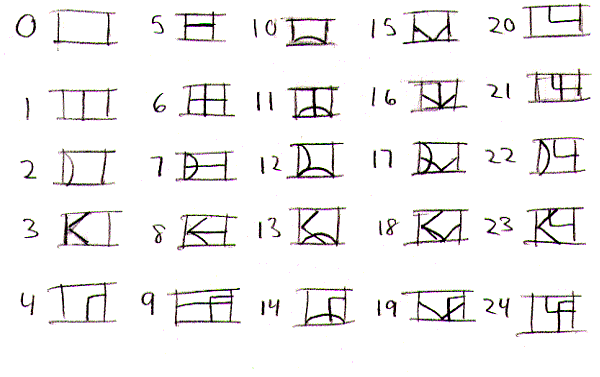 0 5 10 15 20
1 6 11 16 21
2 7 12 17 22
3 8 13 18 23
4 9 14 19 24